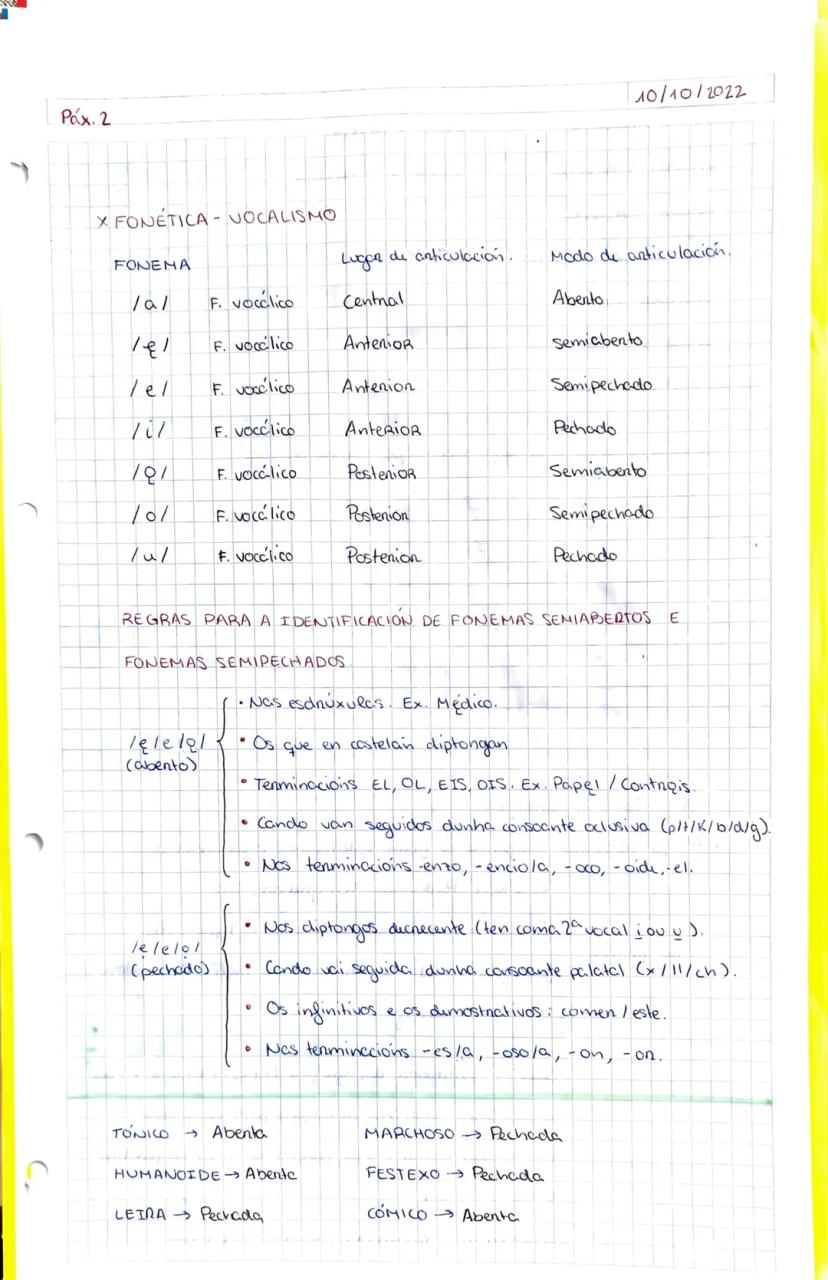 10/10/2022
Páx. 2
x FONÉTICA - VOCALISMO
FONEMA Lugar de articulación. Modo de articulación.
/a/ F. vocálico Central Aberto
/ę/ F. vocálico Anterior Semiaberto
/e/ F. vocálico Anterior Semipechado
/i/ F. vocálico Anterior Pechado
/ǫ/ F. vocálico Posterior Semiaberto
/o/ F. vocálico Posterior Semipechado
/u/ F. vocálico Posterior Pechado
REGRAS PARA A IDENTIFICACIÓN DE FONEMAS SEMIABERTOS E
FONEMAS SEMIPECHADOS
/ę/e/ǫ/
(aberto)
• Nas esdrúxulas. Ex. Mędico.
• Os que en castelán diptongan
• Terminacións EL, OL, EIS, OIS. Ex. Papęl / Contrǫis.
• Cando van seguidos dunha consoante oclusiva (p/t/k/b/d/g).
• Nas terminacións -enzo, -encio/a, -oco, -oide, -el.
/e/e/o/
(pechado)
• Nos diptongos decrecente (ten coma 2ª vocal i ou u).
• Cando vai seguida dunha consoante palatal (x/ll/ch).
• Os infinitivos e os demostrativos: comer / este.
• Nas terminacións -es/a, -oso/a, -on, -or.
TÓNICO → Aberta MARCHOSO → Pechada
HUMANOIDE → Aberta FESTEXO → Pechada
LEIRA → Pechada CÓMICO → Aberta